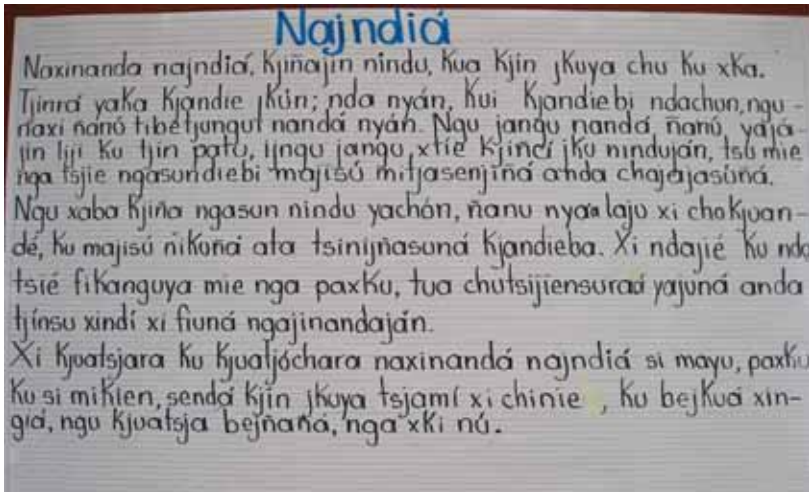 Najndiá
Naxinanda najndiá, Kjiñajin nindu, Kua Kjin jKuya chu Ku xKa.
Tjinrá yaKa Kjandie jKún; nda nyán, Kui Kjandiebi ndachun, ngu-
naxi ñanú tibétjungui nandá nyán. Ngu jangu nandá ñanú, yajá-
jin liji Ku tjin patu, ijngu jangu, xtie Kjincí jKu ninduján, tsú mie
nga tsjie ngasundiebi majisú mitjasenjiñá anda chajajasúná.
Ngu xaba Kjiña ngasun nindu yachón, ñanu nyaa laju xi choKjuan-
dé, Ku majisú niKoñá ata tsinijñasuná Kjandieba. Xi ndajié Ku nda
tsié fiKanguya mie nga paxKu, tua chutsijiensuraá yajuná anda
tjínsu xindí xi fiuná ngajinandaján.
Xi Kjuatsjara Ku Kjuatjóchara naxinandá najndiá si mayu, paxKu
Ku si miKien, sendá Kjin jKuya tsjamí xi chinie , Ku bejKuá xin-
giá, ngu Kjuatsja bejñañá, nga xKi nú.